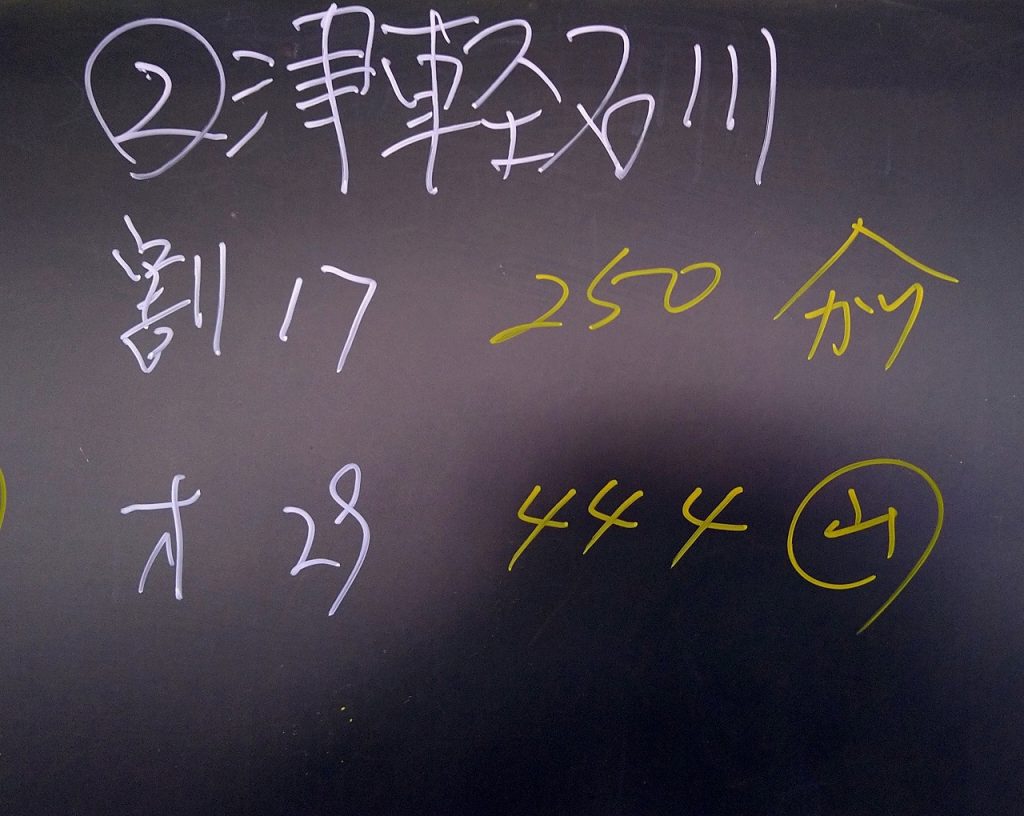 ②津軽石川
割 17 250 カツ
オ 29 444 山